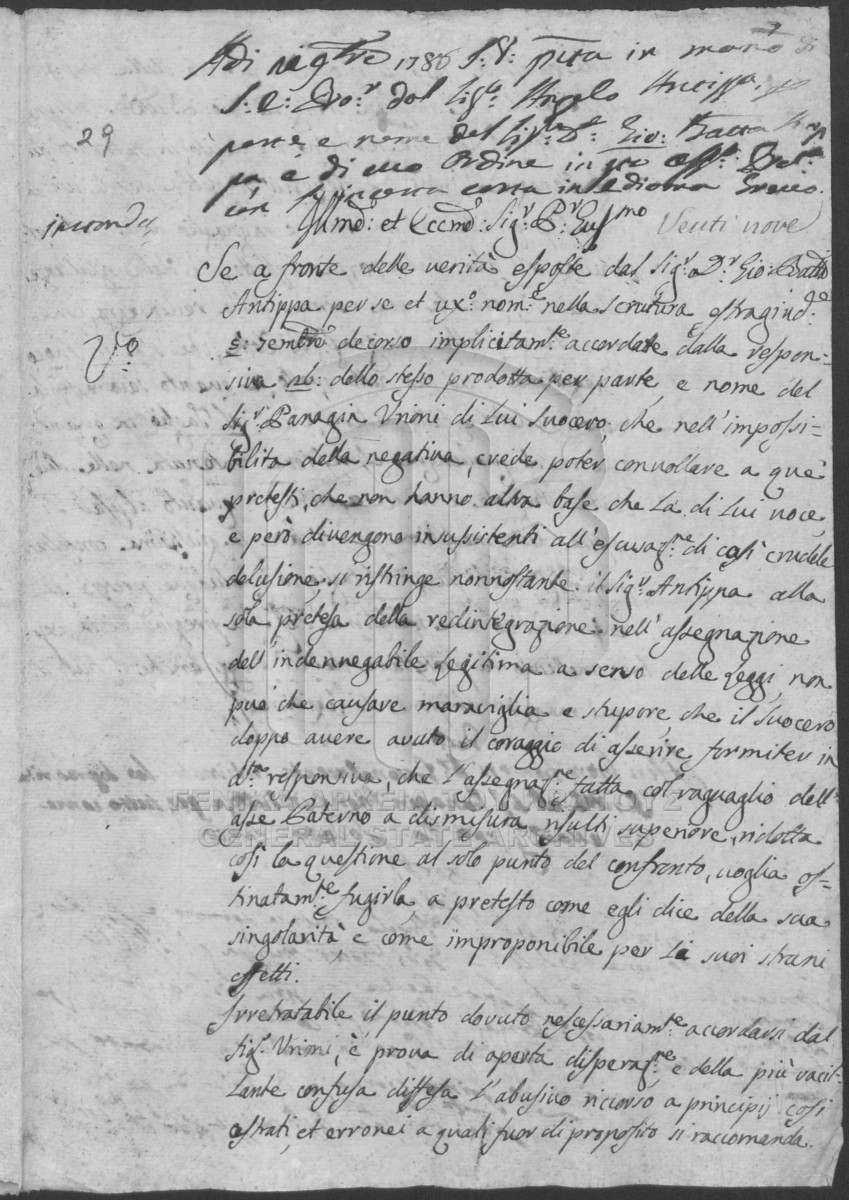 Adi 9bre 1786 S:V: pñta in mano di
S: E: Prov.r dal Sig.r Angelo Anzippa, p
29
parte e nome del Sig.r D.r Gio: Batta Antip
pa e di suo Ordine in
con carta in Idioma Greco.
Illmo: et Eccmo: Sig.r P.r Eus.mo Venti nove
Se a fronte delle verità esposte dal Sig.r D.r Gio: Batta
Antippa per se et ux.o nom.e nella scrittura estragiud.e
5: 7embre decorso implicitam.te accordate dalla respon-
V.o
siva ab: dello stesso prodotta per parte, e nome del
Sig.r Panagin Vrioni di Lui Suocero, che nell'impossi-
bilita della negativa, crede poter convollare a què
pretesti, che non hanno altra base che La di Lui voce,
e però divengono insussistenti all'escusaz.ne di così crudele
delusione, si ristringe nonnostante il Sig.r Antippa alla
sola pretesa della redintegrazione nell'assegnazione
dell'indennegabile legitima a senso delle Leggi, non
può che causare maraviglia e stupore, che il Suocero
doppo avere avuto il coraggio di asserire formiter in
d.ta responsiva, che l'assegnaz.ne fatta col raguaglio dell'
asse Paterno a dismisura risulti superiore, ridotta
così la questione al solo punto del confronto, voglia os-
tinatam.te fugirla, a pretesto come egli dice della sua
singolarità e come improponibile per Li suoi strani
effetti.
Irretratabile il punto dovuto nescessariam.te accordarsi dal
Sig.r Vrioni, è prova di aperta disperaz.ne e della più vacil-
Lante confusa diffesa L'abusivo ricorso a principij così
astrati, et erronei a quali fuor di proposito si raccomanda.
ΓΕΝΙΚΑ ΑΡΧΕΙΑ ΤΟΥ ΚΡΑΤΟΥΣ
GENERAL STATE ARCHIVES